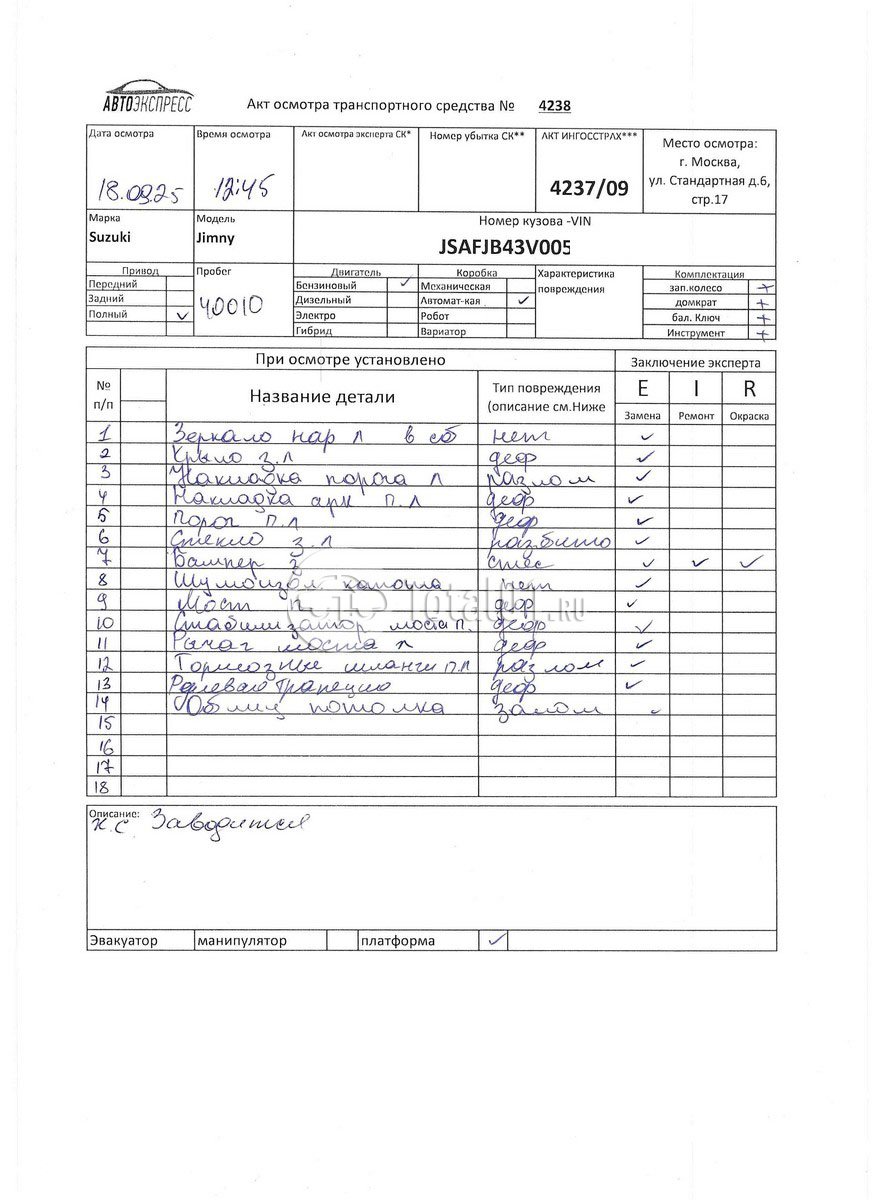 АВТОЭКСПРЕСС
Акт осмотра транспортного средства № 4238
Дата осмотра Время осмотра Акт осмотра эксперта СК* Номер убытка СК** АКТ ИНГОССТРАХ*** Место осмотра:
г. Москва,
18.09.25 12:45 4237/09 ул. Стандартная д.6,
стр.17
Марка Модель Номер кузова -VIN
Suzuki Jimny JSAFJB43V005
Привод Пробег Двигатель Коробка Характеристика Комплектация
Передний Бензиновый ✓ Механическая повреждения зап.колесо +
Задний 40010 Дизельный Автомат-кая ✓ домкрат +
Полный ✓ Электро Робот бал. Ключ +
Гибрид Вариатор Инструмент +
При осмотре установлено Заключение эксперта
№ п/п Название детали Тип повреждения (описание см.Ниже E I R
Замена Ремонт Окраска
1 Зеркало нар л в сб нет ✓
2 Крыло з.л деф ✓
3 Накладка порога л разлом ✓
4 Накладка арк п.л деф ✓
5 Порог п.л деф ✓
6 Стекло з.л разбито ✓
7 Бампер з стес ✓ ✓ ✓
8 Шумоизол капота нет ✓
9 Мост п деф ✓
10 Стабилизатор моста п. деф ✓
11 Рычаг моста п деф ✓
12 Тормозные шланги п.л разлом ✓
13 Рулевая трапеция деф ✓
14 Облиц потолка залом ✓
15
16
17
18
Описание:
н.с Заводится
Эвакуатор манипулятор платформа ✓
TotalOil.RU